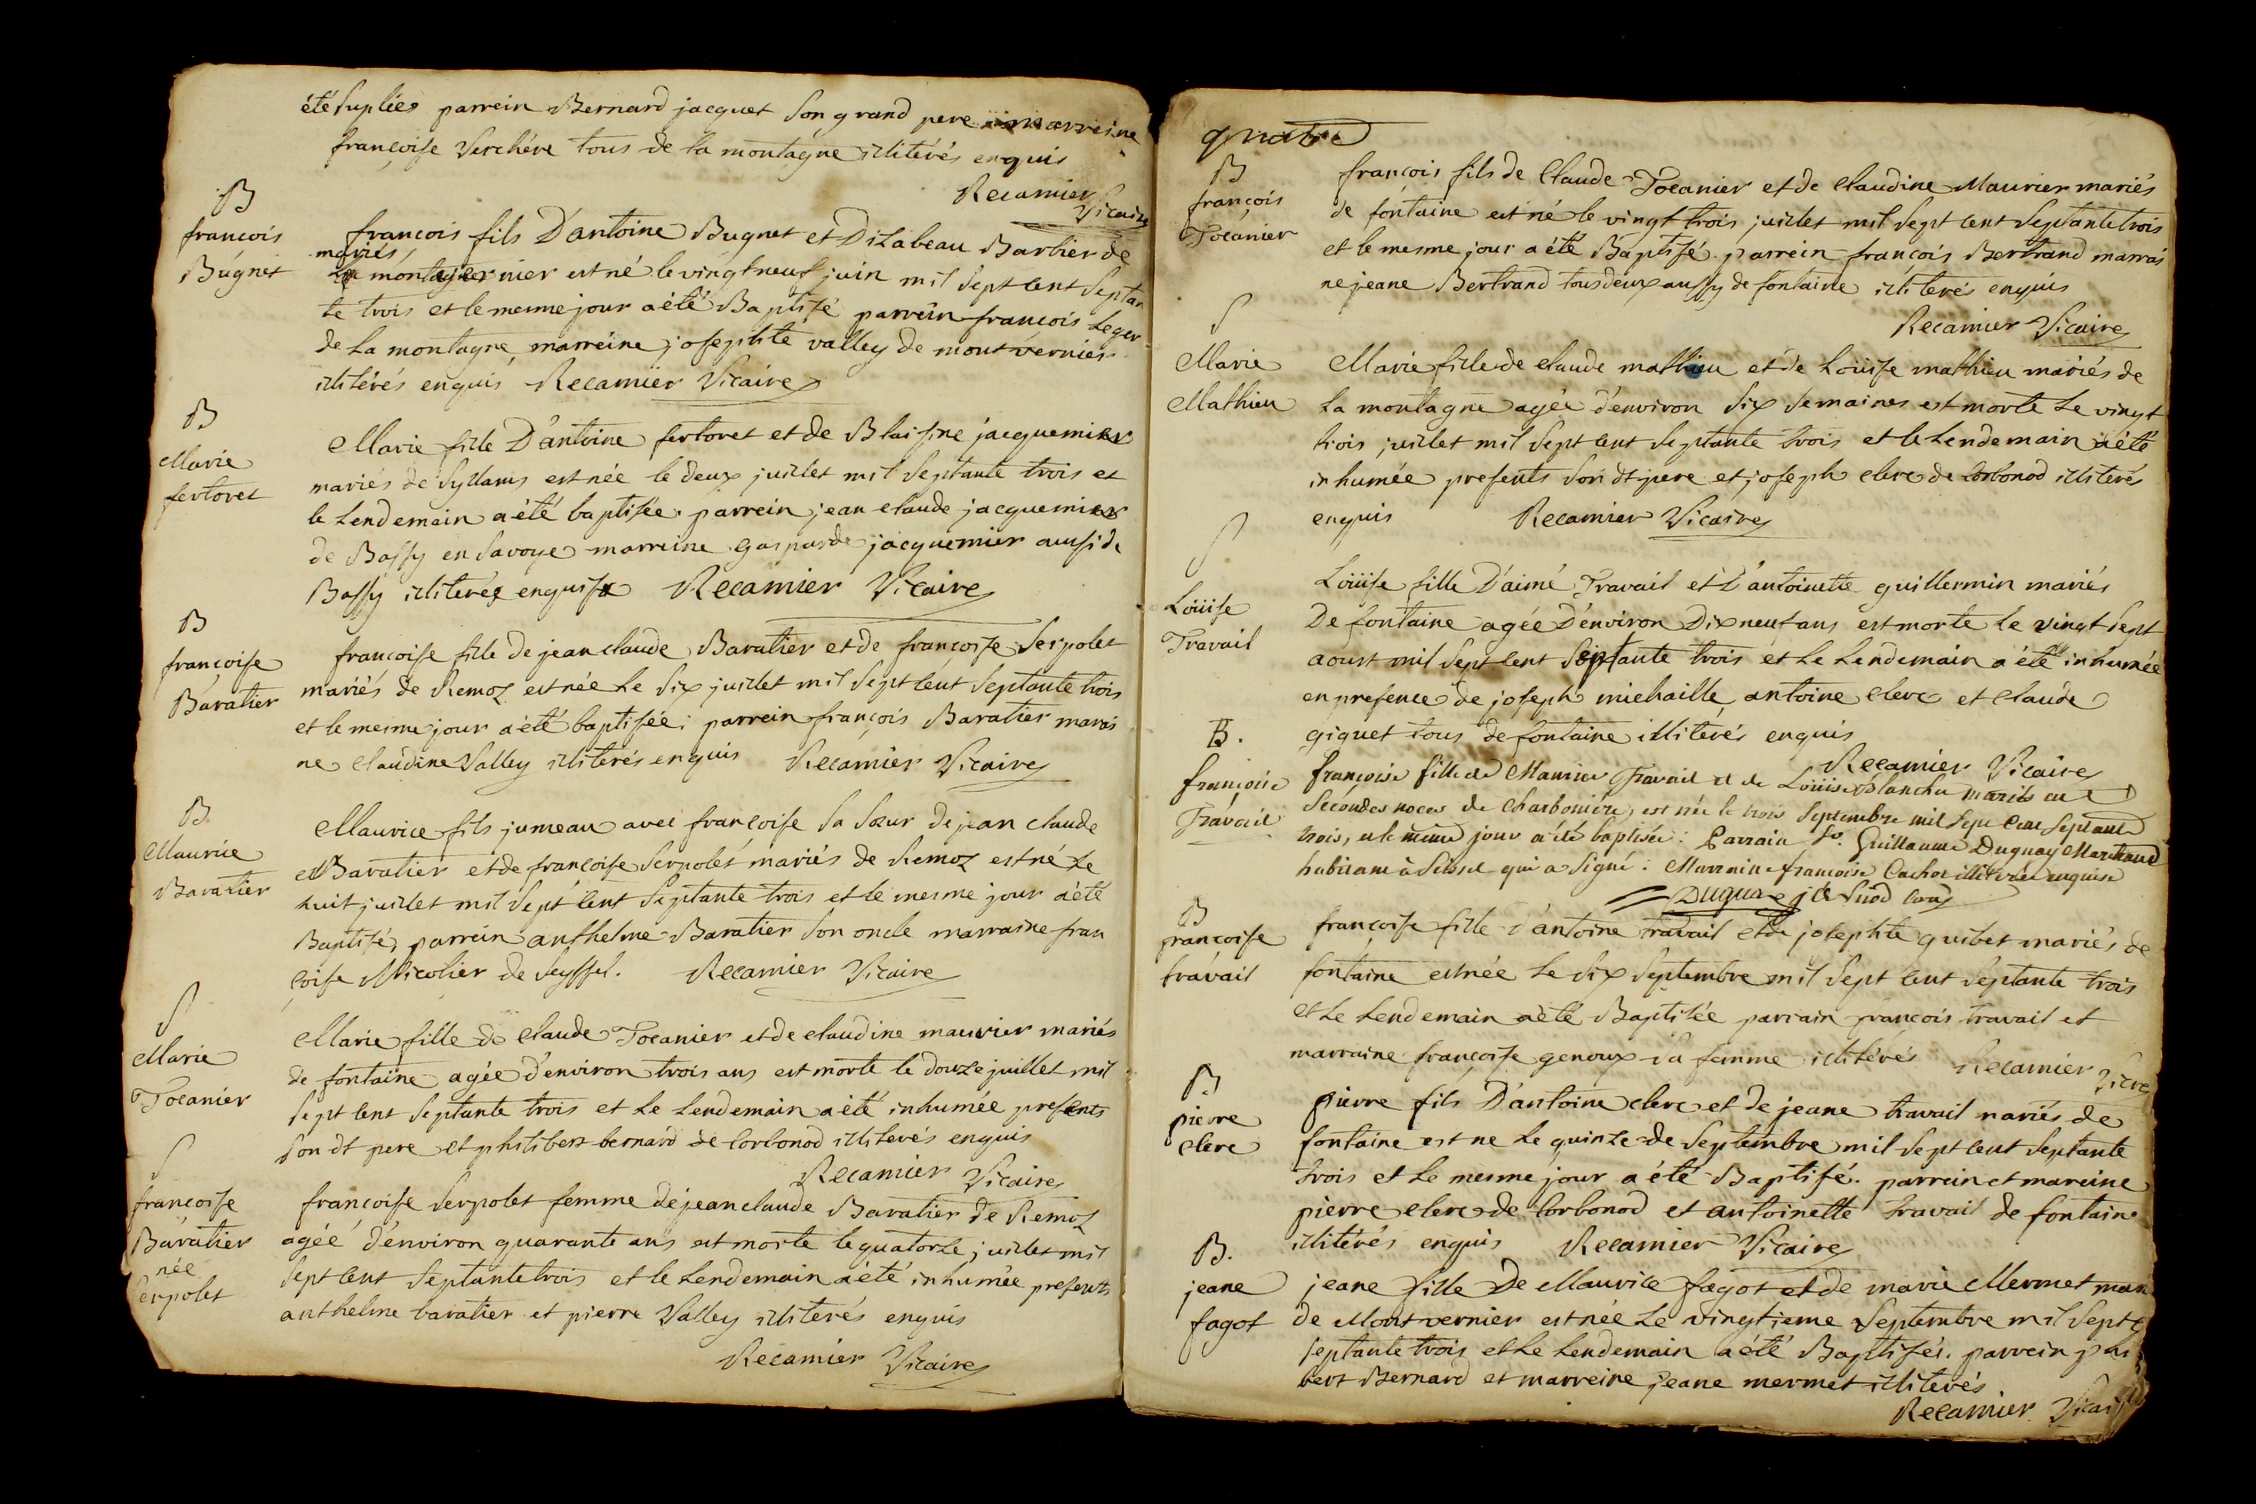 été supliées parrein Bernard jacquet son grand pere marreine
françoise Verchére tous de la montagne illitérés enquis
Recamier Vicaire
B
francois
Bugnet
francois fils D'antoine Bugnet et Disabeau Barbier de
mariés
la montagne est né le vingt neuf juin mil sept cent septan
te trois et le mesme jour a été Baptisé parrein françois Leger
de la montagne, marreine josephte valley de montvernier
illitérés enquis Recamier Vicaire
B
Marie
fertoret
Marie fille D'antoine fertoret et de Blaisine jacquemier
mariés de Syllans est née le deux juillet mil septante trois et
le Lendemain a été baptisée. parrein jean claude jacquemier
de Bassy en Savoye marreine gasparde jacquemier aussi de
Bassy illiterés enquis Recamier Vicaire
B
françoise
Baratier
francoise fille de jean claude Baratier et de francoise Serpolet
mariés de Remoz est née Le six juillet mil sept cent septante trois
et le mesme jour a été baptisée: parrein françois Baratier marrei
ne claudine Valley illiterés enquis Recamier Vicaire
B
Maurice
Baratier
Maurice fils jumeau avec françoise sa sœur de jean claude
Baratier et de françoise Serpolet mariés de Remoz est né Le
huit juillet mil sept cent septante trois et le mesme jour a été
Baptisé, parrein anthelme Baratier son oncle marraine fran
çoise Nicolier de Seyssel. Recamier Vicaire
S
Marie
Tocanier
Marie fille de claude Tocanier et de claudine maurier mariés
de fontaine agée d'environ trois ans est morte le douze juillet mil
sept cent septante trois et Le Lendemain a été inhumée presents
son dt pere et philibert bernard de Corbonod illiterés enquis
Recamier Vicaire
S
francoise
Baratier
née
Serpolet
françoise Serpolet femme de jean claude Baratier de Remoz
agée d'environ quarante ans est morte le quatorze juillet mil
sept cent septante trois et le Lendemain a été inhumée presents
anthelme baratier et pierre Valley illiterés enquis
Recamier Vicaire
quatre
B
françois
Tocanier
françois fils de Claude Tocanier et de claudine Maurier mariés
de fontaine est né le vingt trois juillet mil sept cent septante trois
et le mesme jour a été Baptisé. parrein françois Bertrand marrai
ne jeane Bertrand tous deux aussy de fontaine illiterés enquis
Recamier Vicaire
S
Marie
Mathieu
Marie fille de claude mathieu et de Loüise mathieu mariés de
La montagne agée d'environ six semaines est morte le vingt
trois juillet mil sept cent septante trois et le Lendemain a été
inhumée presents son dt pere et joseph clerc de Corbonod illiterés
enquis Recamier Vicaire
S
Loüise
Travail
Loüise fille D'aimé Travail et D'antoinette guillermin mariés
De fontaine agée D'environ Dix neuf ans est morte le vingt sept
aoust mil sept cent septante trois et Le Lendemain a été inhumée
en presence de joseph michaille, antoine clerc et claude
giquet tous de fontaine illitérés enquis
Recamier Vicaire
B.
françoise
Travail
françoise fille de Maurice Travail et de Loüise Blanche mariés en
secondes noces de Charboniére, est née le trois Septembre mil sept cent septante
trois, et le même jour a été baptisée: Parrain sr. Guillaume Duguay Marchand
habitant à Seissel qui a signé: Marraine francoise Cachot illiterée enquise
Duguay
B
françoise
travail
françoise fille d'antoine travail et de josephte guibet mariés de
fontaine est née Le six septembre mil sept cent septante trois
et Le Lendemain a été Baptisée parrain françois travail et
marraine françoise genoux sa femme illitérés Recamier Vicre
B
pierre
clerc
pierre fils D'antoine clerc et de jeane travail mariés de
fontaine est ne Le quinze de Septembre mil sept cent septante
trois et Le mesme jour a été Baptisé. parrein et mareine
pierre clerc de Corbonod et antoinette travail de fontaine
illitérés enquis Recamier Vicaire
B.
jeane
fagot
jeane fille De Maurice fagot et de marie Mermet mari
de Montvernier est née Le vingtieme Septembre mil sept c
septante trois et Le Lendemain a été Baptisée. parrein phi
bert Bernard et marreine jeane mermet illiterés.
Recamier Vicaire